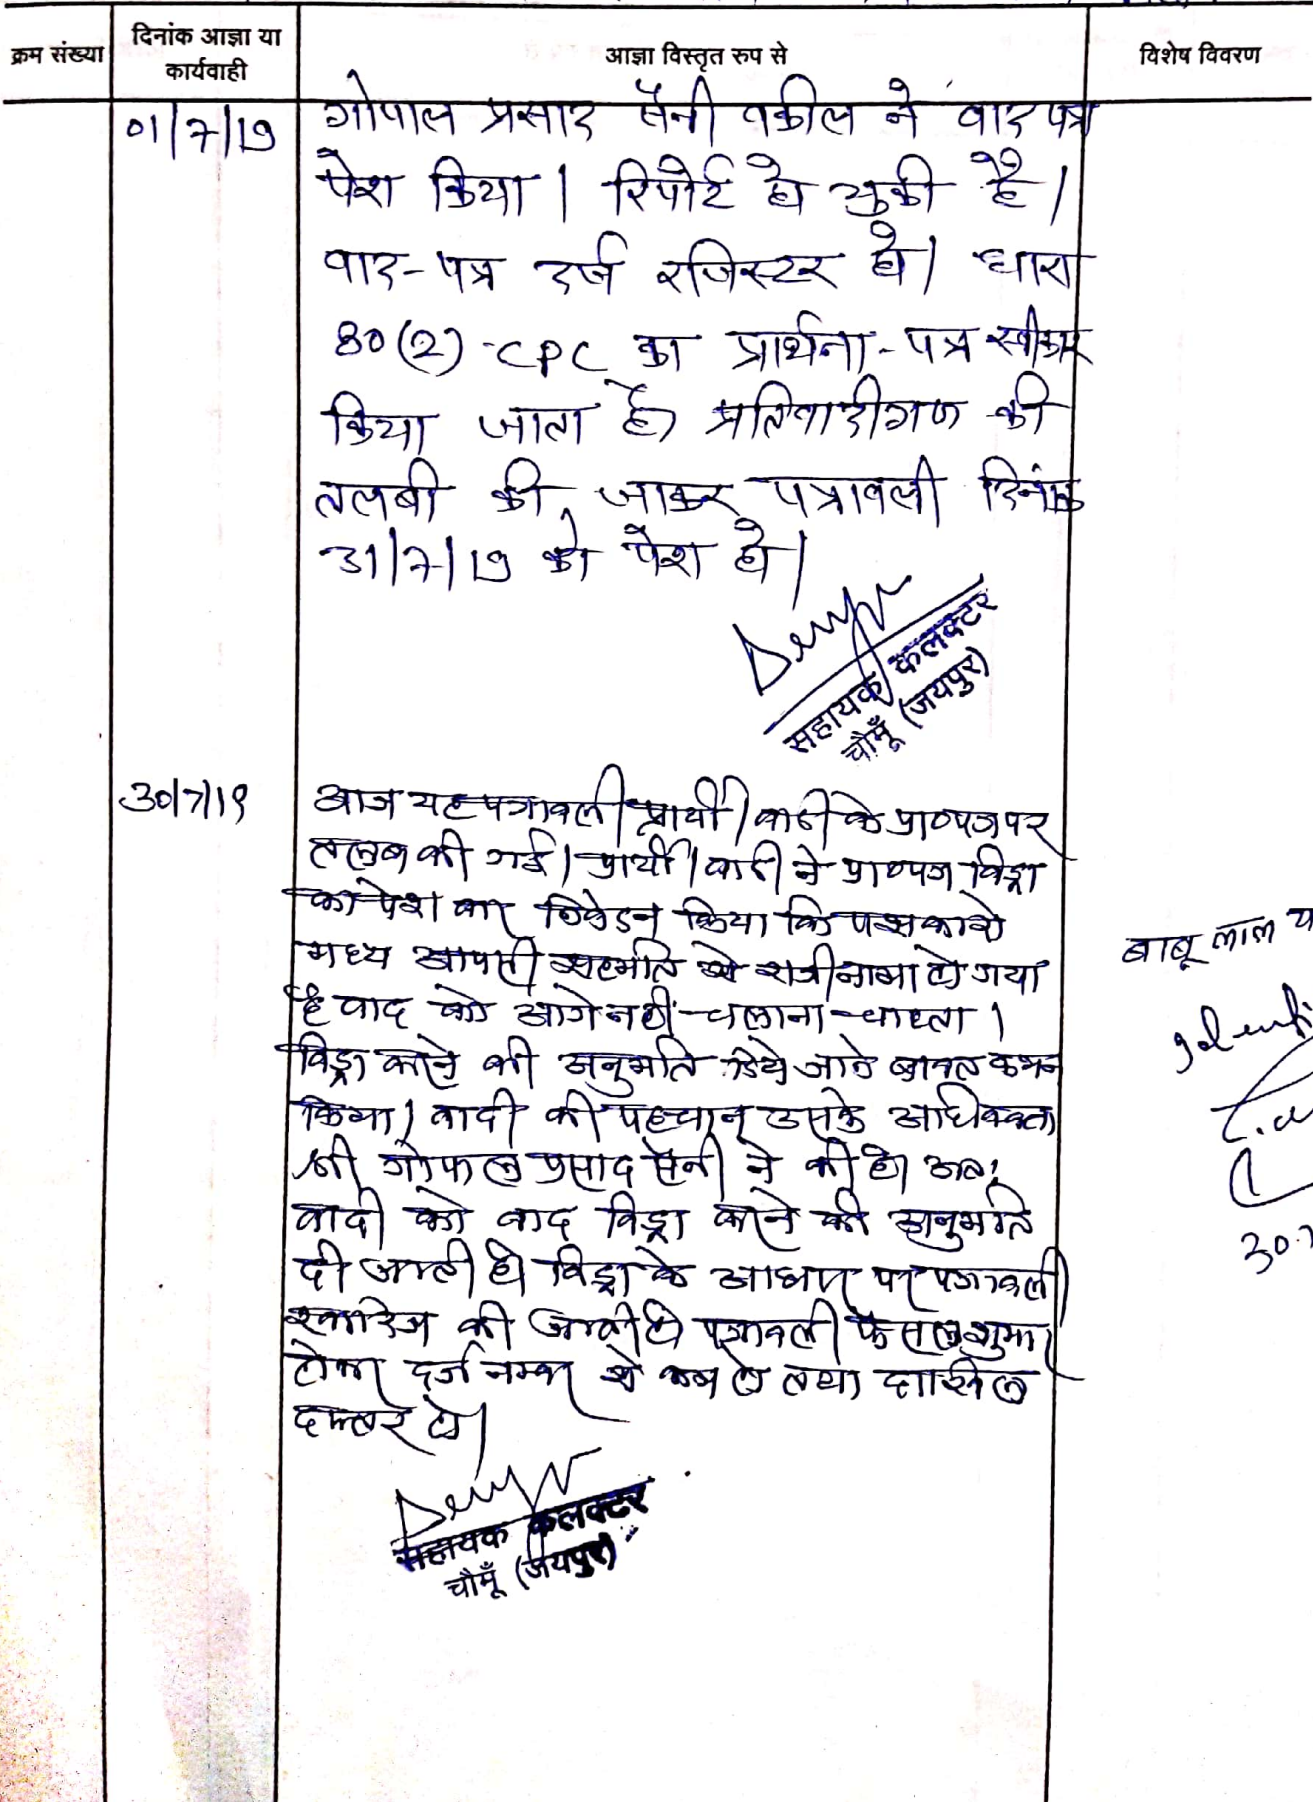 क्रम संख्या
दिनांक आज्ञा या
कार्यवाही
आज्ञा विस्तृत रुप से
विशेष विवरण
01/7/19
गोपाल प्रसाद सैनी वकील ने वाद पत्र
पेश किया। रिपोर्ट हो चुकी है।
वाद-पत्र दर्ज रजिस्टर हो। धारा
80(2) CPC का प्रार्थना-पत्र स्वीकार
किया जाता है। प्रतिवादीगण की
तलबी की जाकर पत्रावली दिनांक
31/7/19 को पेश हो।
सहायक कलक्टर
चौमूँ (जयपुर)
30/7/19
आज यह पत्रावली प्रार्थी/वादी के प्रा०पत्र पर
तलब की गई। प्रार्थी/वादी ने प्रा०पत्र विड्रा
का पेश कर निवेदन किया कि पक्षकारो
मध्य आपसी सहमति से राजीनामा हो गया
है वाद को आगे नहीं चलाना चाहता।
विड्रा करने की अनुमति दिये जाने बाबत कथन
किया। वादी की पहचान उसके अधिवक्ता
श्री गोपाल प्रसाद सैनी ने की है। अतः
वादी को वाद विड्रा करने की अनुमति
दी जाती है। विड्रा के आधार पर पत्रावली
खारिज की जाती है। पत्रावली फैसल शुमार
होकर दर्ज नम्बर से कम हो तथा दाखिल
दफ्तर हो।
सहायक कलक्टर
चौमूँ (जयपुर)
बाबू लाल
30.